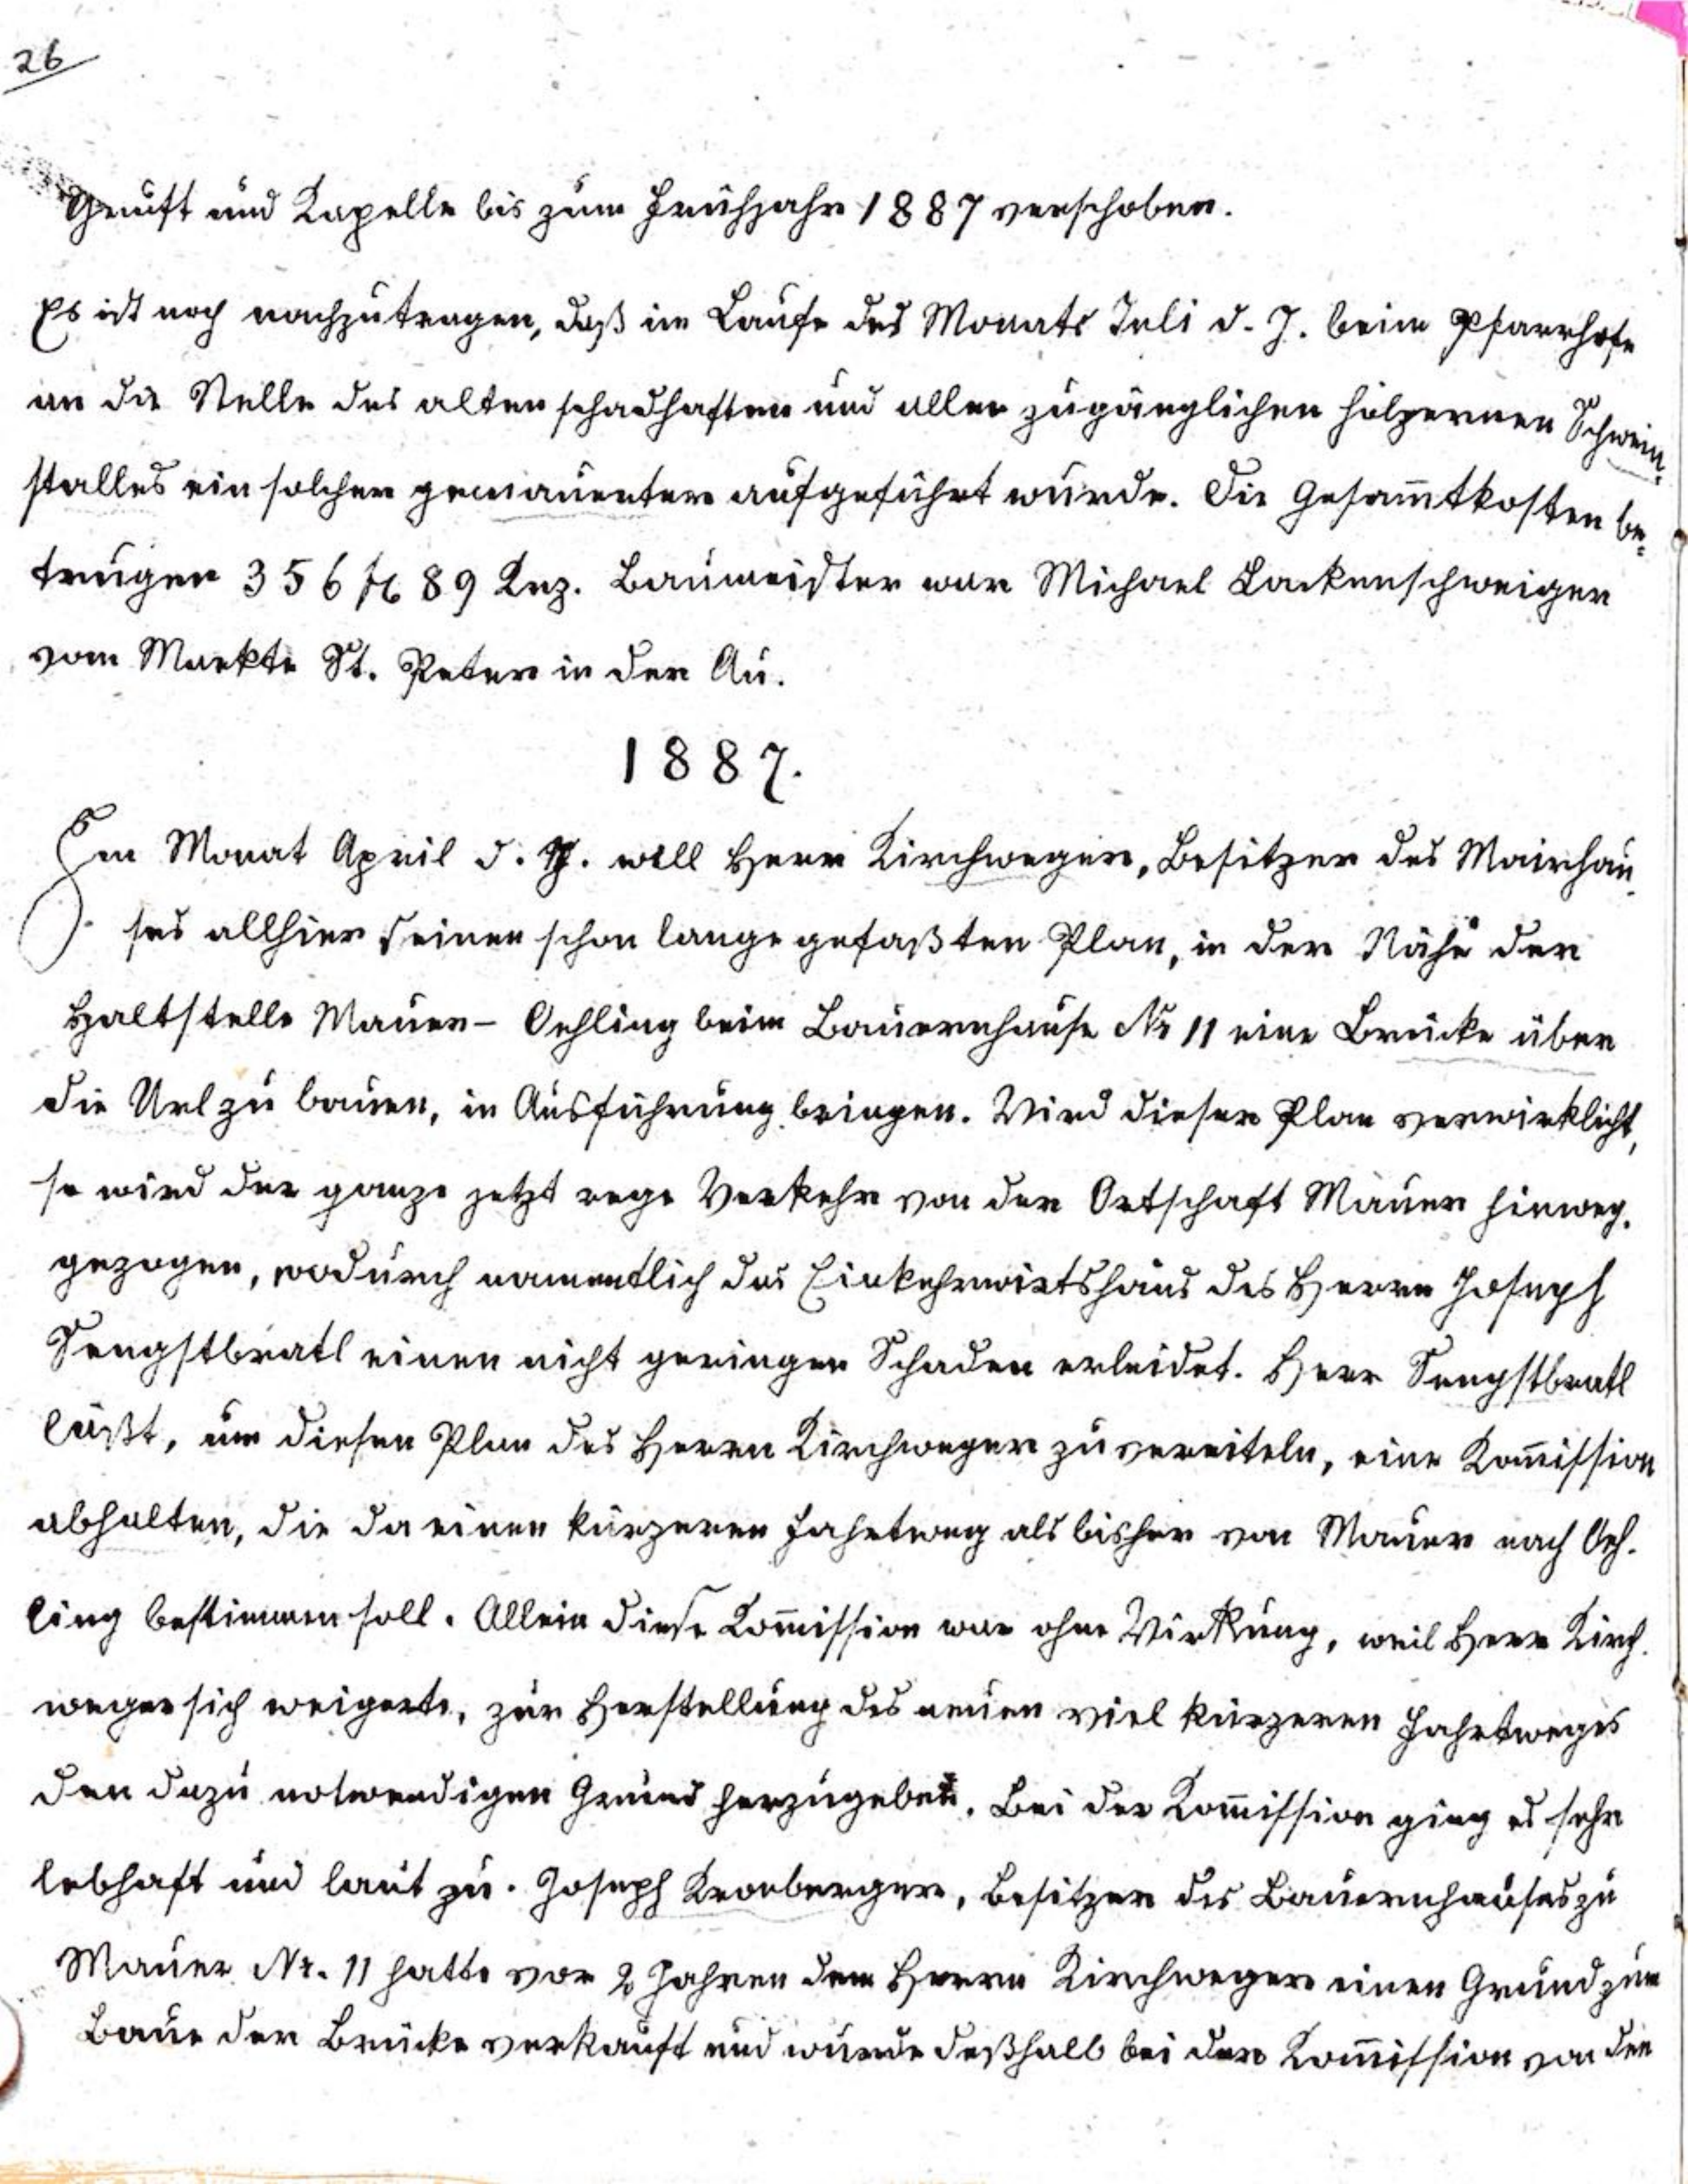 26
Gruft und Kapelle bis zum Frühjahr 1887 verschoben.
Es ist noch nachzutragen, daß im Laufe des Monats Juli d. J. beim Pfarrhofe
an die Stelle des alten schadhaften und allen zugänglichen hölzernen Schwein-
stalles ein solcher gemauerter aufgeführt wurde. Die Gesam̄tkosten be-
trugen 356 fl 89 Krz. Baumeister war Michael Lackenschweiger
vom Markte St. Peter in der Au.
1887.
Im Monat April d. J. will Herr Kirchweger, Besitzer des Mairhau-
ses allhier seinen schon lange gefaßten Plan, in der Nähe der
Haltstelle Mauer - Oehling beim Bauernhause Nr 11 eine Brücke über
die Url zu bauen, in Ausführung bringen. Wird dieser Plan verwirklicht,
so wird der ganze jetzt rege Verkehr von der Ortschaft Mauer hinweg-
gezogen, wodurch namentlich das Einkehrwirtshaus des Herrn Joseph
Sengstbratl einen nicht geringen Schaden erleidet. Herr Sengstbratl
läßt, um diesen Plan des Herrn Kirchweger zu vereiteln, eine Kom̄ission
abhalten, die da einen kürzeren Fahrtweg als bisher von Mauer nach Oeh-
ling bestimmen soll. Allein diese Kom̄ission war ohne Wirkung, weil Herr Kirch-
weger sich weigerte, zur Herstellung des neuen viel kürzeren Fahrtweges
den dazu notwendigen Grund herzugeben. Bei der Kom̄ission ging es sehr
lebhaft und laut zu. Joseph Kronberger, Besitzer des Bauernhauses zu
Mauer Nr. 11 hatte vor 2 Jahren dem Herrn Kirchweger einen Grund zum
Baue der Brücke verkauft und wurde deßhalb bei der Kom̄ission von den